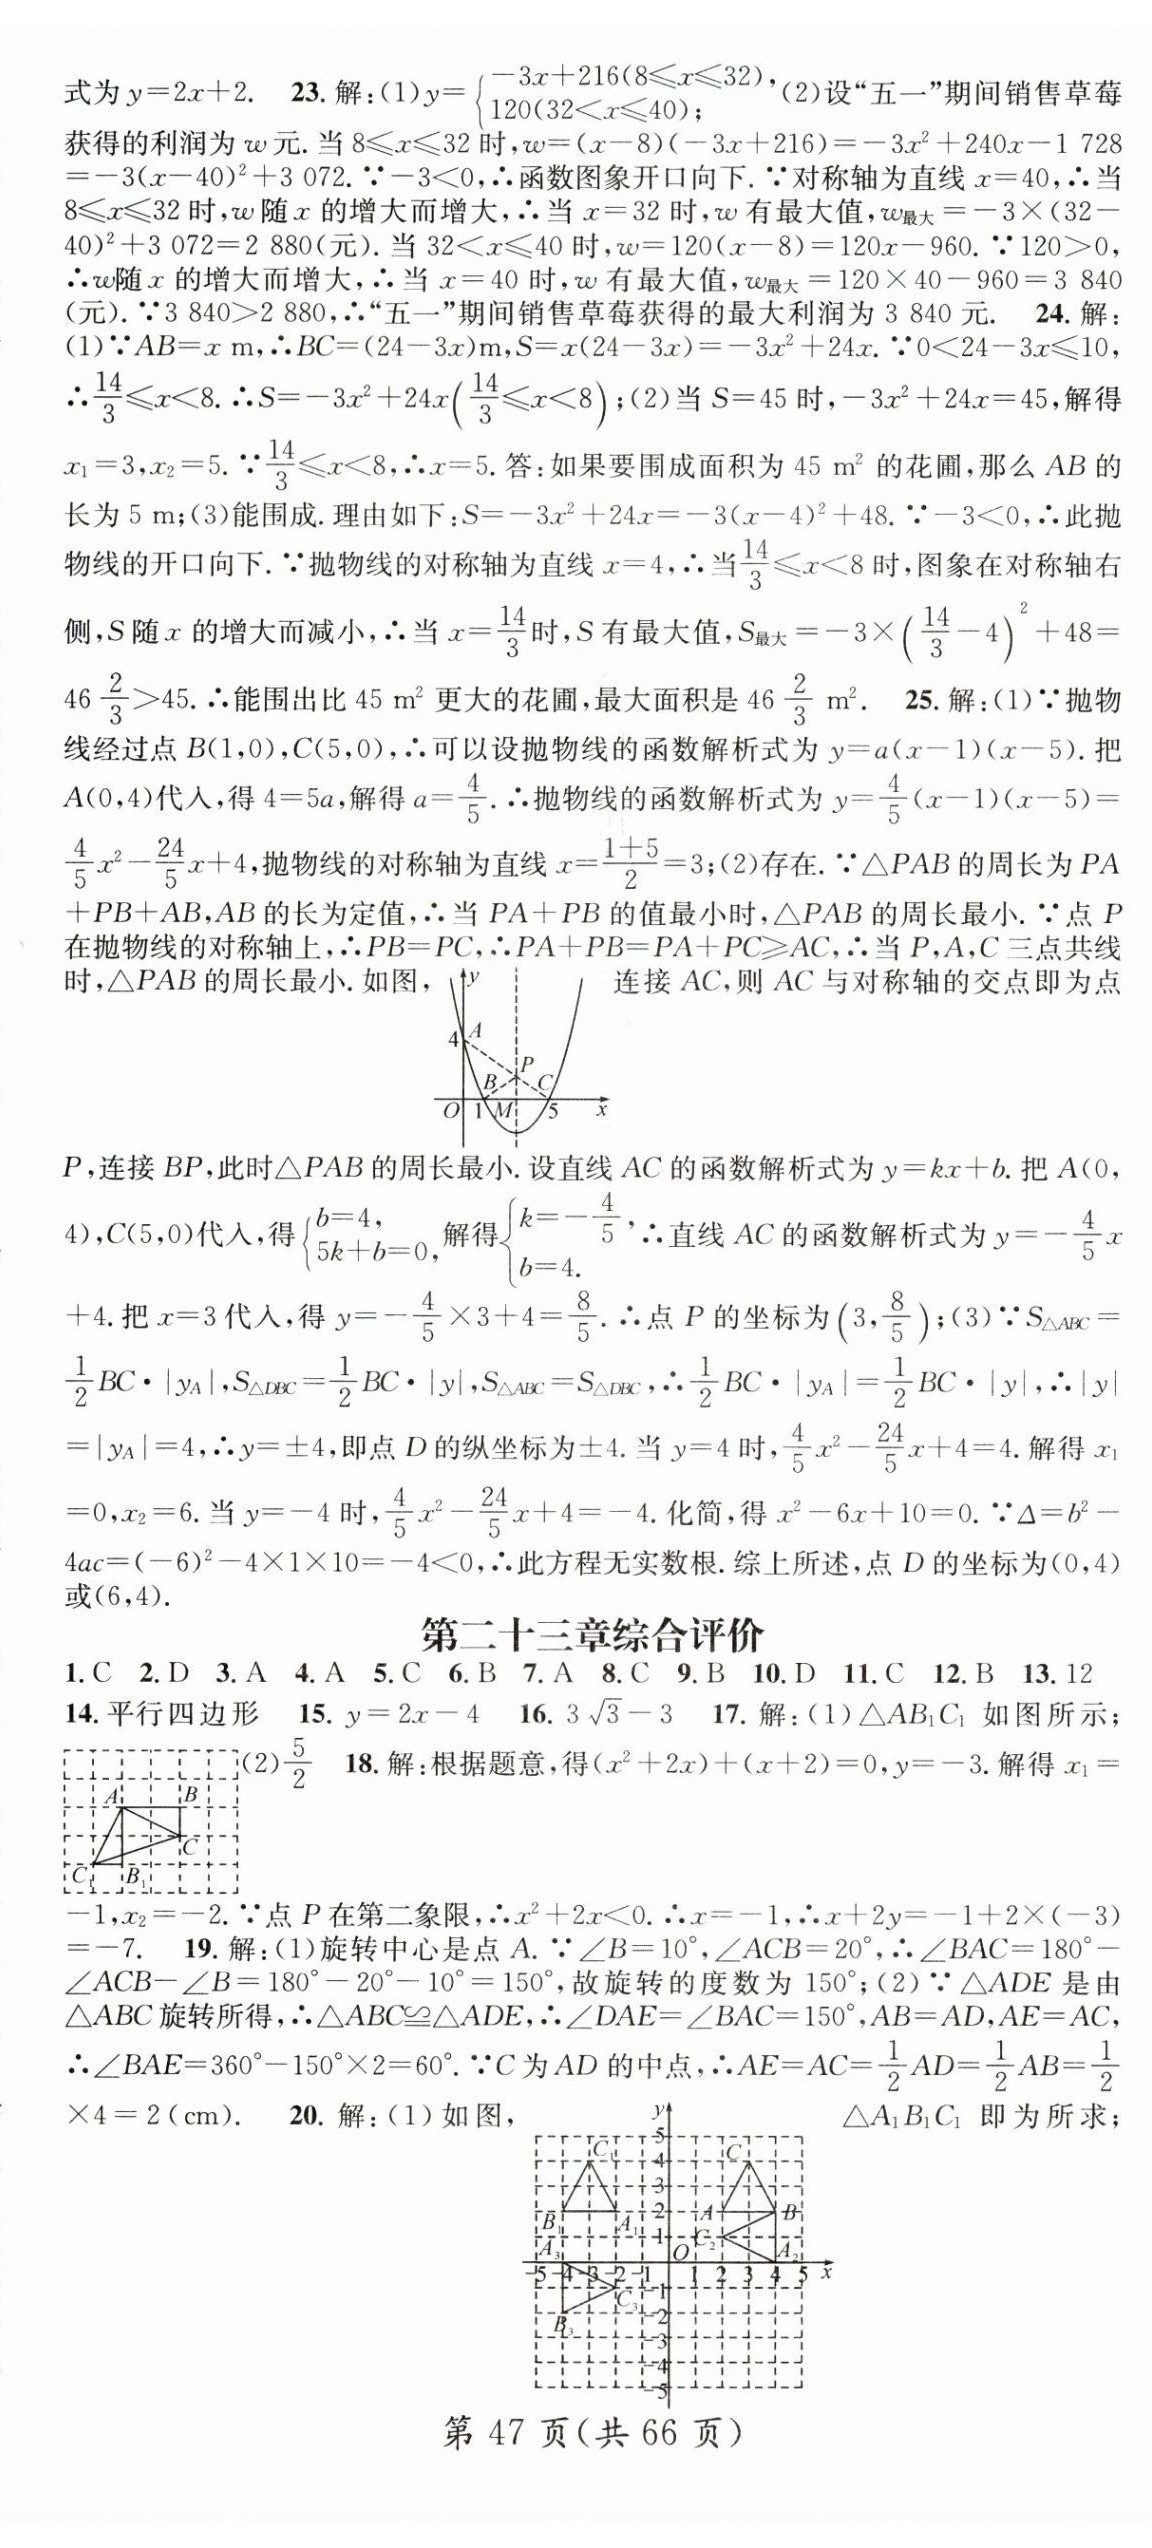 式为 y=2x+2. 23. 解:(1)y={−3x+216(8≤x≤32), 120(32<x≤40); (2)设“五一”期间销售草莓
获得的利润为 w 元. 当 8≤x≤32 时,w=(x−8)(−3x+216)=−3x²+240x−1 728
=−3(x−40)²+3 072. ∵−3<0,∴函数图象开口向下. ∵对称轴为直线 x=40,∴当
8≤x≤32 时,w 随 x 的增大而增大,∴当 x=32 时,w 有最大值,w最大=−3×(32−
40)²+3 072=2 880(元). 当 32<x≤40 时,w=120(x−8)=120x−960. ∵120>0,
∴w随 x 的增大而增大,∴当 x=40 时,w 有最大值,w最大=120×40−960=3 840
(元). ∵3 840>2 880,∴“五一”期间销售草莓获得的最大利润为 3 840 元. 24. 解:
(1)∵AB=x m,∴BC=(24−3x)m,S=x(24−3x)=−3x²+24x. ∵0<24−3x≤10,
∴14/3≤x<8. ∴S=−3x²+24x(14/3≤x<8);(2)当 S=45 时,−3x²+24x=45,解得
x₁=3,x₂=5. ∵14/3≤x<8,∴x=5. 答:如果要围成面积为 45 m² 的花圃,那么 AB 的
长为 5 m;(3)能围成. 理由如下:S=−3x²+24x=−3(x−4)²+48. ∵−3<0,∴此抛
物线的开口向下. ∵抛物线的对称轴为直线 x=4,∴当14/3≤x<8 时,图象在对称轴右
侧,S 随 x 的增大而减小,∴当 x=14/3时,S 有最大值,S最大=−3×(14/3−4)²+48=
46 2/3>45. ∴能围出比 45 m² 更大的花圃,最大面积是 46 2/3 m². 25. 解:(1)∵抛物
线经过点 B(1,0),C(5,0),∴可以设抛物线的函数解析式为 y=a(x−1)(x−5). 把
A(0,4)代入,得 4=5a,解得 a=4/5. ∴抛物线的函数解析式为 y=4/5(x−1)(x−5)=
4/5x²−24/5x+4,抛物线的对称轴为直线 x=(1+5)/2=3;(2)存在. ∵△PAB 的周长为 PA
+PB+AB,AB 的长为定值,∴当 PA+PB 的值最小时,△PAB 的周长最小. ∵点 P
在抛物线的对称轴上,∴PB=PC,∴PA+PB=PA+PC≥AC,∴当 P,A,C 三点共线
时,△PAB 的周长最小. 如图, 连接 AC,则 AC 与对称轴的交点即为点
y
4 A
P
B C
O 1 M 5 x
P,连接 BP,此时△PAB 的周长最小. 设直线 AC 的函数解析式为 y=kx+b. 把 A(0,
4),C(5,0)代入,得{b=4, 5k+b=0, 解得{k=−4/5, b=4. ∴直线 AC 的函数解析式为 y=−4/5x
+4. 把 x=3 代入,得 y=−4/5×3+4=8/5. ∴点 P 的坐标为(3,8/5);(3)∵S△ABC=
1/2BC·|yA|,S△DBC=1/2BC·|y|,S△ABC=S△DBC,∴1/2BC·|yA|=1/2BC·|y|,∴|y|
=|yA|=4,∴y=±4,即点 D 的纵坐标为±4. 当 y=4 时,4/5x²−24/5x+4=4. 解得 x₁
=0,x₂=6. 当 y=−4 时,4/5x²−24/5x+4=−4. 化简,得 x²−6x+10=0. ∵Δ=b²−
4ac=(−6)²−4×1×10=−4<0,∴此方程无实数根. 综上所述,点 D 的坐标为(0,4)
或(6,4).
第二十三章综合评价
1. C 2. D 3. A 4. A 5. C 6. B 7. A 8. C 9. B 10. D 11. C 12. B 13. 12
14. 平行四边形 15. y=2x−4 16. 3√3−3 17. 解:(1)△AB₁C₁ 如图所示;
(2)5/2 18. 解:根据题意,得(x²+2x)+(x+2)=0,y=−3. 解得 x₁=
A B
C
C₁ B₁
−1,x₂=−2. ∵点 P 在第二象限,∴x²+2x<0. ∴x=−1,∴x+2y=−1+2×(−3)
=−7. 19. 解:(1)旋转中心是点 A. ∵∠B=10°,∠ACB=20°,∴∠BAC=180°−
∠ACB−∠B=180°−20°−10°=150°,故旋转的度数为 150°;(2)∵△ADE 是由
△ABC 旋转所得,∴△ABC≌△ADE,∴∠DAE=∠BAC=150°,AB=AD,AE=AC,
∴∠BAE=360°−150°×2=60°. ∵C 为 AD 的中点,∴AE=AC=1/2AD=1/2AB=1/2
×4=2(cm). 20. 解:(1)如图, △A₁B₁C₁ 即为所求;
y
5
C₁ 4 C
3
B₁ A₁ 2 A B
1 C₂
A₃ O A₂
−5 −4 −3 −2 −1 1 2 3 4 5 x
−1 C₃
−2 B₃
−3
−4
−5
第 47 页(共 66 页)